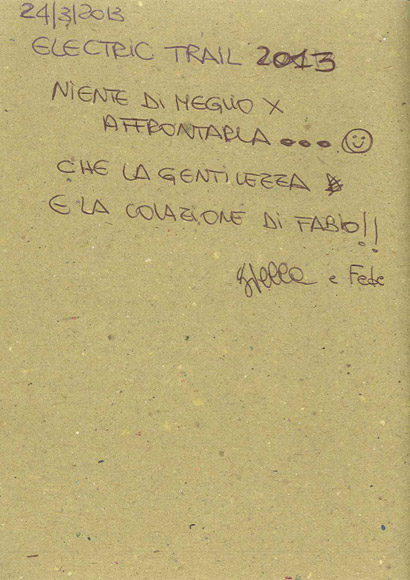 24/3/2013
ELECTRIC TRAIL 2013
NIENTE DI MEGLIO X
AFFRONTARLA ... ☺
CHE LA GENTILEZZA
E LA COLAZIONE DI FABIO!!
Stella e Fede